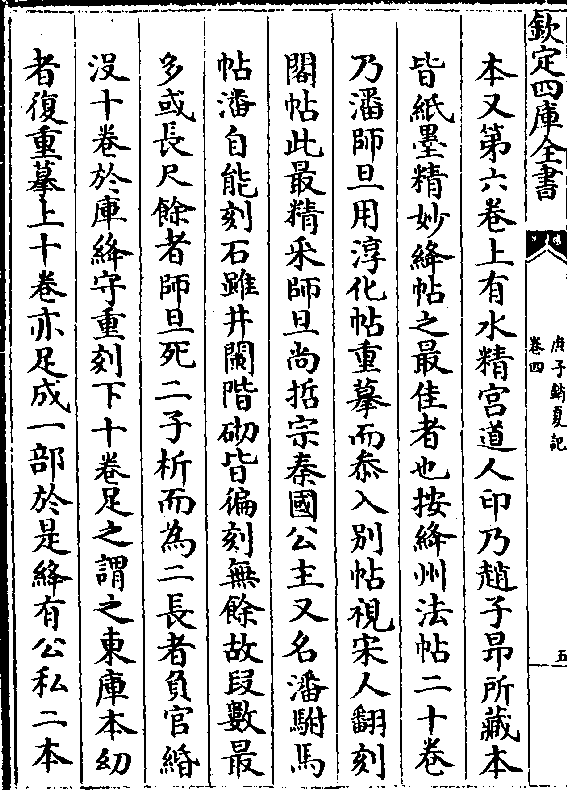 欽定四庫全書
庚子銷夏記
卷四
五
本又第六卷上有水精宫道人印乃趙子昂所藏本
皆紙墨精妙絳帖之最佳者也按絳州法帖二十卷
乃潘師旦用淳化帖重摹而叅入别帖視宋人翻刻
閣帖此最精采師旦尚哲宗秦國公主又名潘駙馬
帖潘自能刻石雖井闌階砌皆徧刻無餘故段數最
多或長尺餘者師旦死二子析而為二長者負官緡
没十卷於庫絳守重刻下十卷足之謂之東庫本幼
者復重摹上十卷亦足成一部於是絳有公私二本